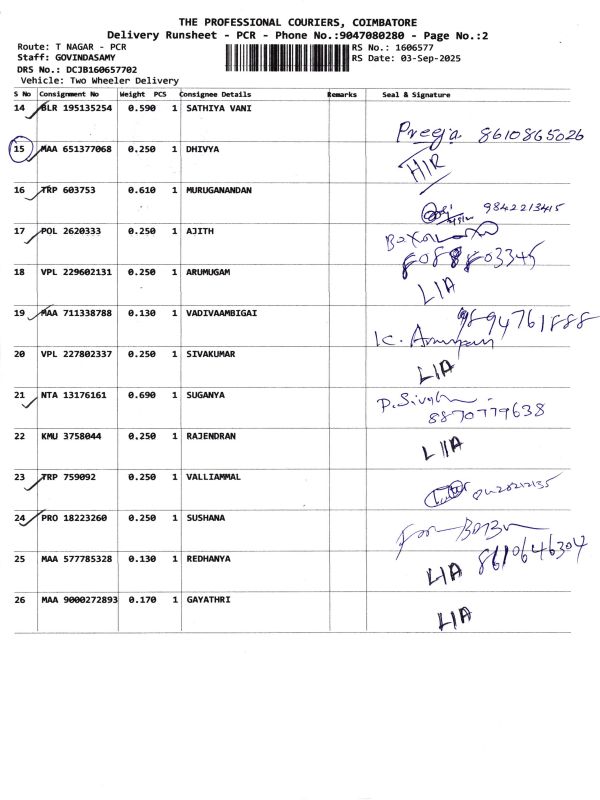 THE PROFESSIONAL COURIERS, COIMBATORE
Delivery Runsheet - PCR - Phone No.:9047080280 - Page No.:2
Route: T NAGAR - PCR RS No.: 1606577
Staff: GOVINDASAMY RS Date: 03-Sep-2025
DRS No.: DCJB160657702
Vehicle: Two Wheeler Delivery
S No Consignment No Weight PCS Consignee Details Remarks Seal & Signature
14 BLR 195135254 0.590 1 SATHIYA VANI
Preeja 8610865026
15 MAA 651377068 0.250 1 DHIVYA
HIR
16 TRP 603753 0.610 1 MURUGANANDAN
9842213415
17 POL 2620333 0.250 1 AJITH
8088803345
18 VPL 229602131 0.250 1 ARUMUGAM
LIA
19 MAA 711338788 0.130 1 VADIVAAMBIGAI
9894761888
K.
20 VPL 227802337 0.250 1 SIVAKUMAR
LIA
21 NTA 13176161 0.690 1 SUGANYA
P.
8870779638
22 KMU 3758044 0.250 1 RAJENDRAN
LIA
23 TRP 759092 0.250 1 VALLIAMMAL
24 PRO 18223260 0.250 1 SUSHANA
8610646304
25 MAA 577785328 0.130 1 REDHANYA
LIA
26 MAA 9000272893 0.170 1 GAYATHRI
LIA